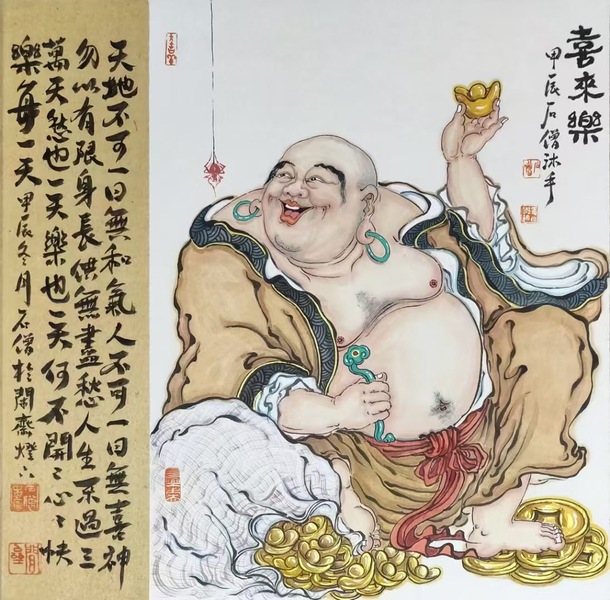 喜來樂
甲辰石僧沐手
天地不可一日無和氣人不可一日無喜神
勿以有限身長供無盡愁人生不過三
萬天愁也一天樂也一天何不開〻心〻快
樂每一天 甲辰冬月石僧於閑齋燈下